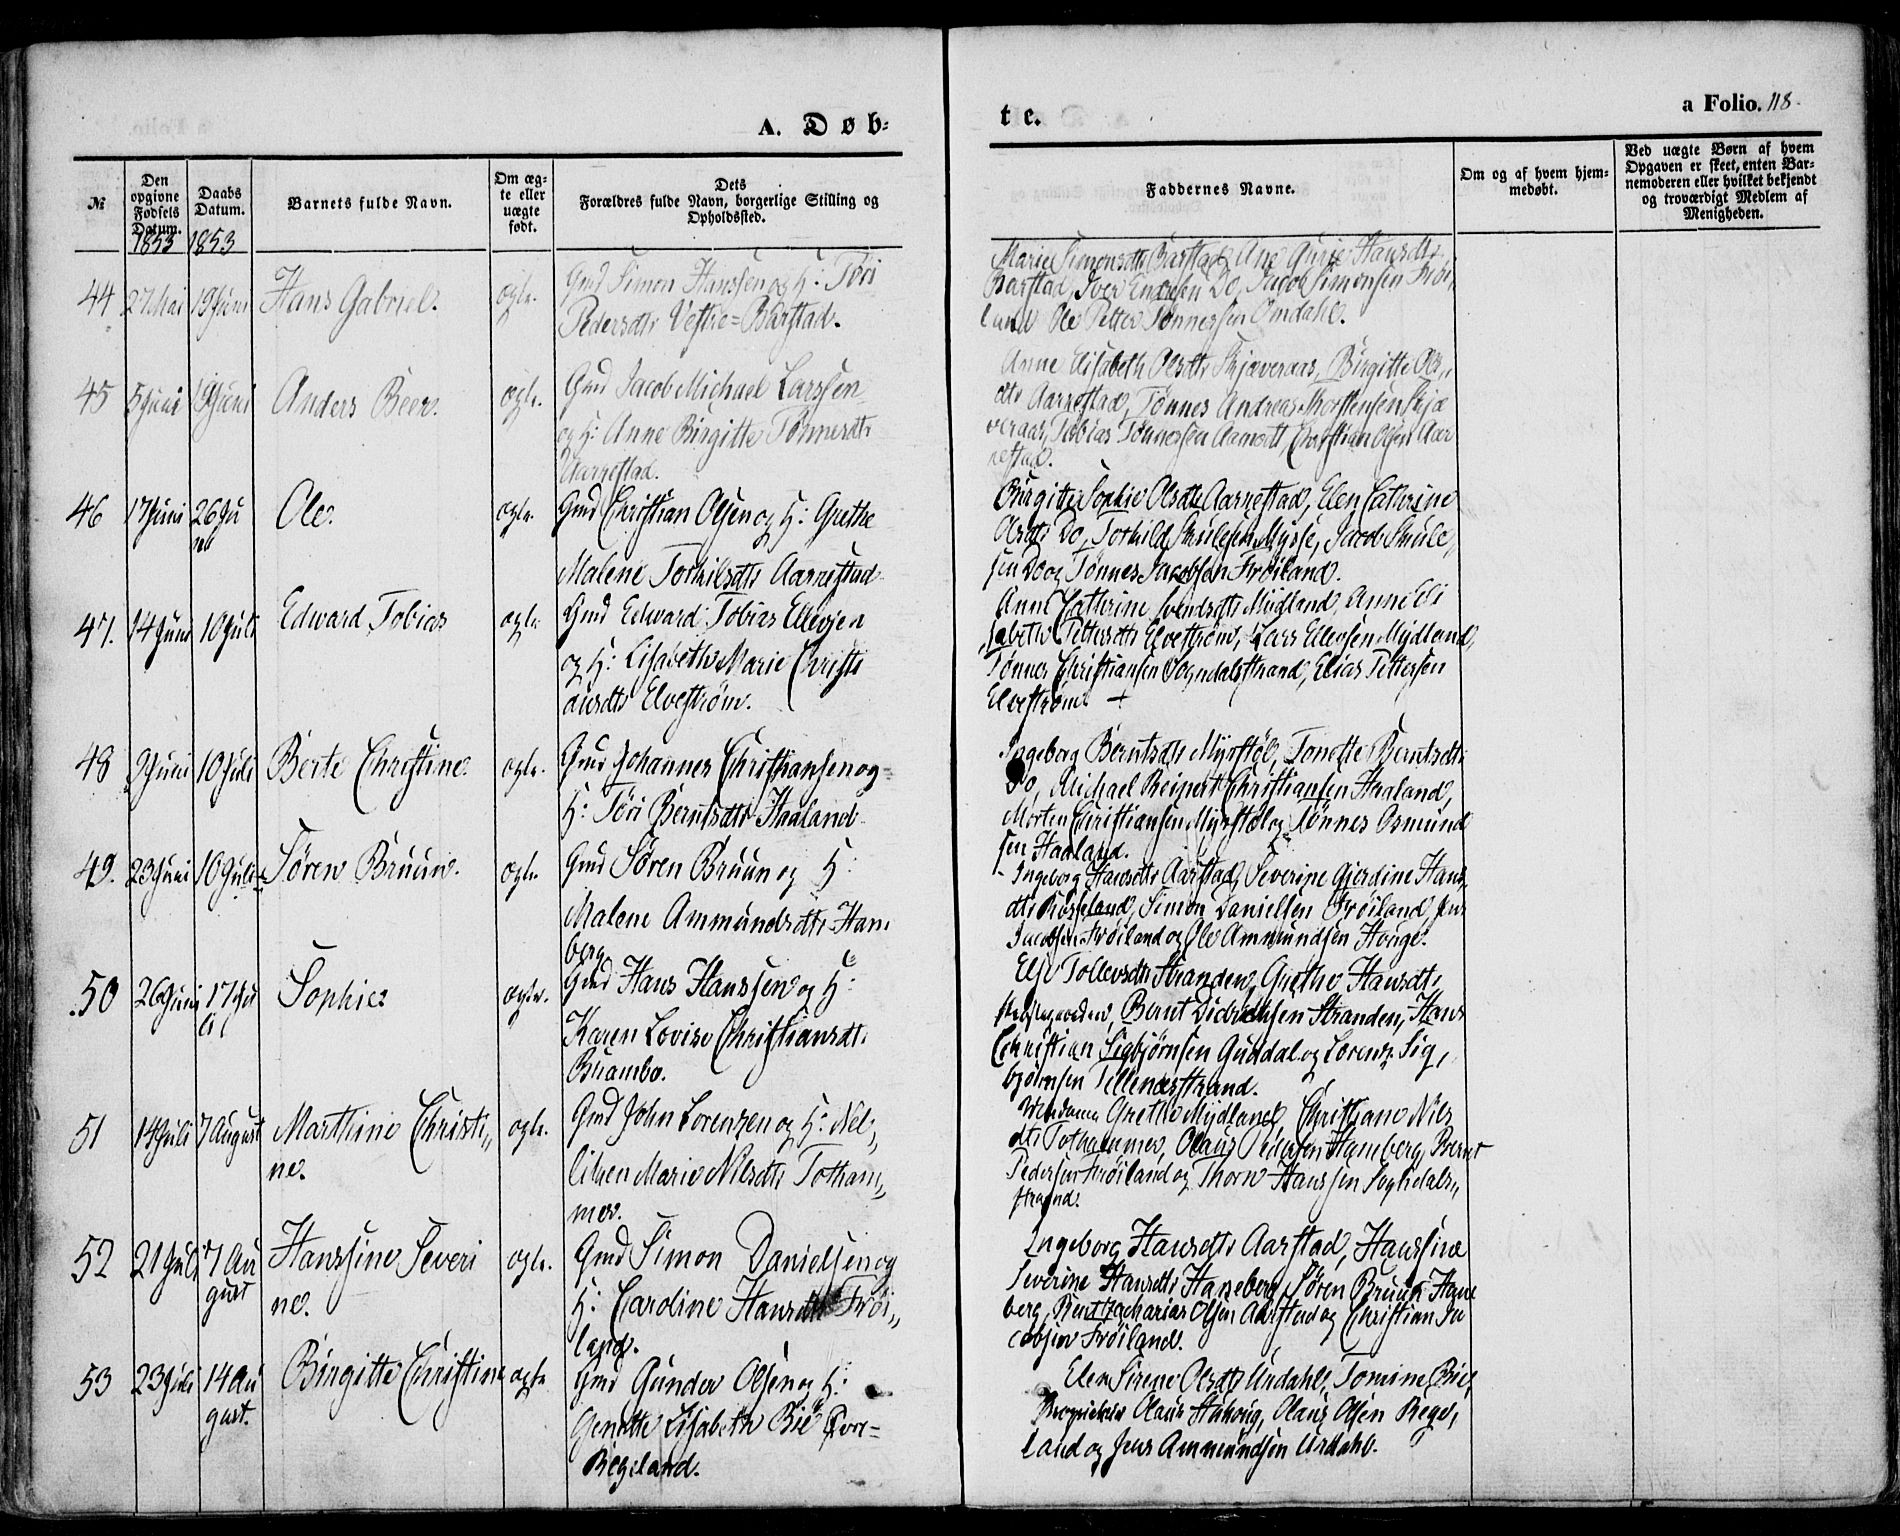 a Folio. 118.
A. Døb=
te.
№
Den opgivne Fødsels Datum.
1853
Daabs Datum.
1853
Barnets fulde Navn.
Om æg-te eller uægte født.
Dets Forældres fulde Navn, borgerlige Stilling og Opholdssted.
Faddernes Navne.
Om og af hvem hjem-medøbt.
Ved uægte Børn af hvem Opgaven er skeet, enten Bar-nemoderen eller hvilket bekjendt og troværdigt Medlem af Menigheden.
44 27 Mai 19 Juni Hans Gabriel. ægte.
Gmd Simon Hanssen og H: Tøri
Pedersdtr Vestre=Barstad.
Marie Simonsdtr Barstad, Ane Gurie Hansdtr
Barstad, Iver Endresen Do, Jacob Simonsen Frøi,
land Ole Petter Tønnessen Omdahl.
45 5 Juni 19 Juni Anders Beer. ægte.
Gmd Jacob Michael Larssen
og H: Anne Birgitte Tønnesdtr
Aarrestad.
Anne Elisabeth Olsdtr Skjæveraas, Birgitte Ols,,
dtr Aarrestad, Tønnes Andreas Thorstensen Skjæ
veraas, Tobias Tønnessen Aamodt, Christian Olsen Aar
restad.
46 17 Juni 26 Ju
ni
Ole. ægte.
Gmd Christian Olsen og H: Grethe
Malene Torkilsdtr Aarrestad
Birgitte Sophie Olsdtr Aarrestad, Elen Cathrine
Olsdtr Do, Torkild Skulesen Mysse, Jacob Skule,
sen Do og Tønnes Jacobsen Frøiland.
47. 14 Juni 10 Juli Edward Tobias ægte.
Gmd Edward Tobias Ellevsen
og H: Lisabeth Marie Christi
ansdtr Elvestrøm.
Anne Cathrine Svendsdtr Mydland, Anne Eli
sabeth Pettersdtr Elvestrøm, Lars Ellevsen Mydland,
Tønnes Christiansen Sogndalsstrand, Elias Pettersen
Elvestrøm +
48 9 Juni 10 Juli Berte Christine. ægte.
Gmd Johannes Christiansen og
H: Tøri Berntsdtr Haaland
Ingeborg Berntsdtr Myrstøl, Tonette Berntsdtr
Do, Michael Reinert Christiansen Haaland,
Morten Christiansen Myrstøl og Tønnes Osmund
sen Haaland.
49. 23 Juni 10 Juli Søren Bruun. ægte.
Gmd Søren Bruun og H:
Malene Ammundsdtr Hane
berg
Ingeborg Hansdtr Aarstad, Severine Gjerdine Hans
dtr Rosseland, Simon Danielsen Frøiland, Jens
Jacobsen Frøiland og Ole Ammundsen Hauge.
50 26 Juni 17 Ju
li
Sophie. ægte.
Gmd Hans Hanssen og H:
Karen Lovise Christiansdtr
Buambo.
Else Tollevsdtr Stranden, Grethe Hansdtr
Bernt Didrichsen Stranden, Hans
Christian Sigbjørnsen Guddal og Lorents Sig,
bjørnsen Tellenæsstrand.
51 14 Juli 7 August Marthine Christi,,
ne. ægte.
Gmd John Lorenzen og H: Nel,
likken Marie Nilsdtr Totham,,
mer.
Madame Grethe Mydland, Christiane Nils
dtr Tothammer, Olaus Pedersen Haneberg, Bernt
Pedersen Frøiland og Thorn Hanssen Soghdals,,
strand.
52 21 Juli 7 Au
gust
Hanssine Severi
ne. ægte.
Gmd Simon Danielsen og
H: Cardine Hansdtr Frøi,,
land.
Ingeborg Hansdtr Aarstad, Hanssine
Severine Hansdtr Haneberg, Søren Bruun Hane
berg, Bent Zacharias Olsen Aarstad og Christian Ja
cobsen Frøiland.
53 23 Juli 14 Au
gust.
Birgitte Christine ægte
Gmd Gunder Olsen og H:
Genette Lisabeth Bie
Regeland.
Elen Sirene Olsdtr Urdahl, Tomine Bie,
Olaus Olsen Rege,
land og Jens Ammundsen Urdahl.